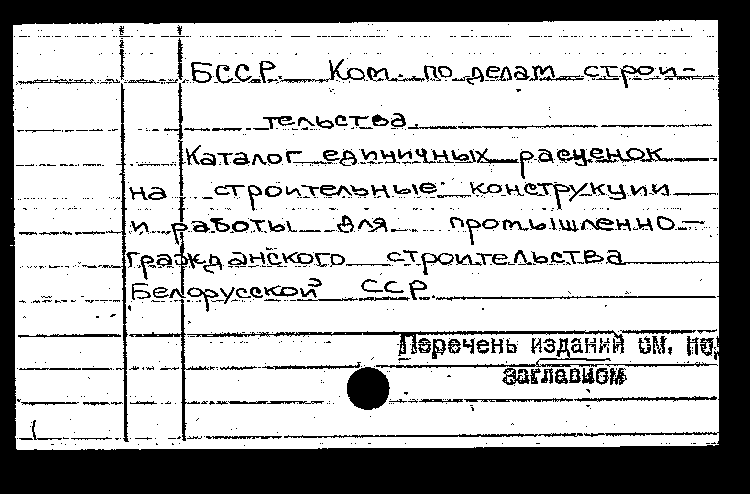 БССР. Ком. по делам строи-
тельства.
Каталог единичных расценок
на строительные конструкции
и работы для промышленно-
гражданского строительства
Белорусской ССР
Перечень изданий см. под
заглавием